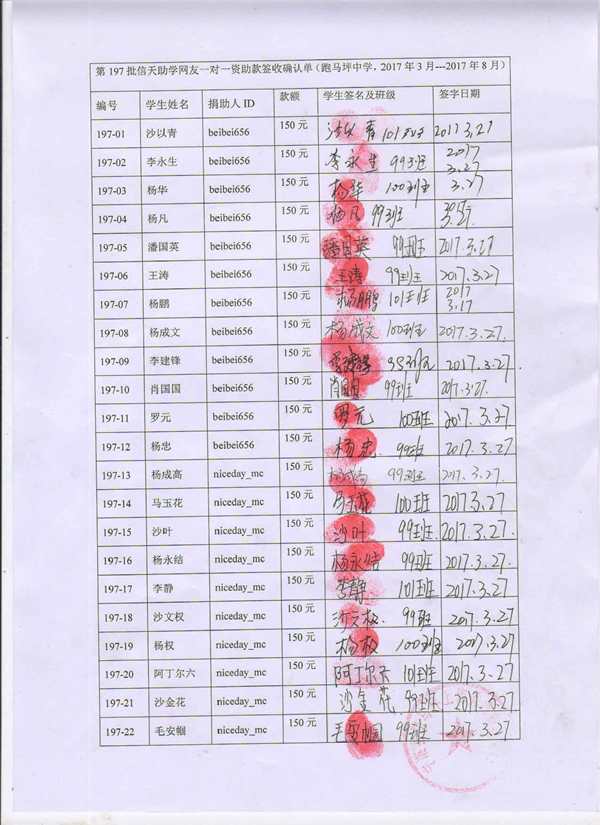 第 197 批信天助学网友一对一资助款签收确认单（跑马坪中学，2017 年 3 月---2017 年 8 月）
编号 学生姓名 捐助人 ID 款额 学生签名及班级 签字日期
197-01 沙以青 beibei656 150 元 沙以青 101 2017 3.27
197-02 李永生 beibei656 150 元 李永生 99班 2017 3.27
197-03 杨华 beibei656 150 元 杨华 100班 3.27
197-04 杨凡 beibei656 150 元 杨凡 99班 3.27
197-05 潘国英 beibei656 150 元 潘国英 99班 2017.3.27
197-06 王涛 beibei656 150 元 王涛 99班 2017.3.27
197-07 杨鹏 beibei656 150 元 杨鹏 101班 2017 3.17
197-08 杨成文 beibei656 150 元 杨成文 100班 2017.3.27.
197-09 李建锋 beibei656 150 元 2017.3.27
197-10 肖国国 beibei656 150 元 肖国国 99班 2017.3.27.
197-11 罗元 beibei656 150 元 罗元 100班 2017.3.27
197-12 杨忠 beibei656 150 元 杨忠. 99班 2017.3.27
197-13 杨成高 niceday_mc 150 元 杨成高 99班 2017.3.27
197-14 马玉花 niceday_mc 150 元 马玉花 100班 2017.3.27
197-15 沙叶 niceday_mc 150 元 沙叶 99班 2017.3.27
197-16 杨永结 niceday_mc 150 元 杨永结 99班 2017.3.27.
197-17 李静 niceday_mc 150 元 李静 101班 2017.3.27
197-18 沙文权 niceday_mc 150 元 沙文权. 99班 2017.3.27
197-19 杨权 niceday_mc 150 元 杨权 100班 2017.3.27
197-20 阿丁尔六 niceday_mc 150 元 阿丁尔六 10班 2017.3.27
197-21 沙金花 niceday_mc 150 元 沙金花 99班 2017.3.27
197-22 毛安帼 niceday_mc 150 元 毛安帼 99班 2017.3.27